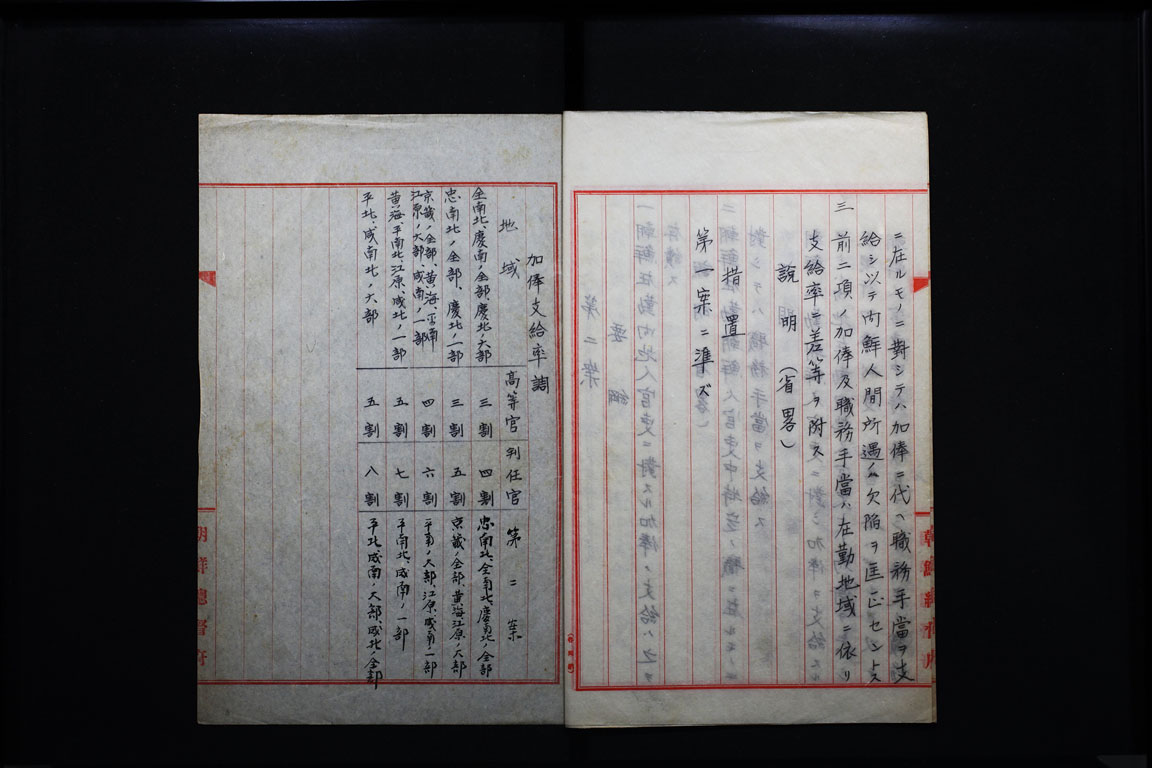 ニ在ルモノニ對シテハ加俸ニ代ヘ職務手當ヲ支
給シ以テ内鮮人間所遇ノ欠陥ヲ匡正セントス
三 前二項ノ加俸及職務手當ハ在勤地域ニ依リ
支給率ニ差等ヲ附ス
説明(省畧)
措置
第一案ニ準ズ
加俸支給率調
地域 高等官 判任官 第二案
全南北、慶南ノ全部、慶北ノ大部 三割 四割 忠南北、全南北、慶南北ノ全部
忠南北ノ全部、慶北ノ一部 三割 五割 京畿ノ全部、黄海江原ノ大部
京畿ノ全部、黄海、平南
江原ノ大部、咸南ノ一部 四割 六割 平南ノ大部、江原、咸南ノ一部
黄海、平南北、江原、咸北ノ一部 五割 七割 平南北、咸南ノ一部
平北、咸南北ノ大部 五割 八割 平北咸南ノ大部、咸北ノ全部
朝鮮總督府